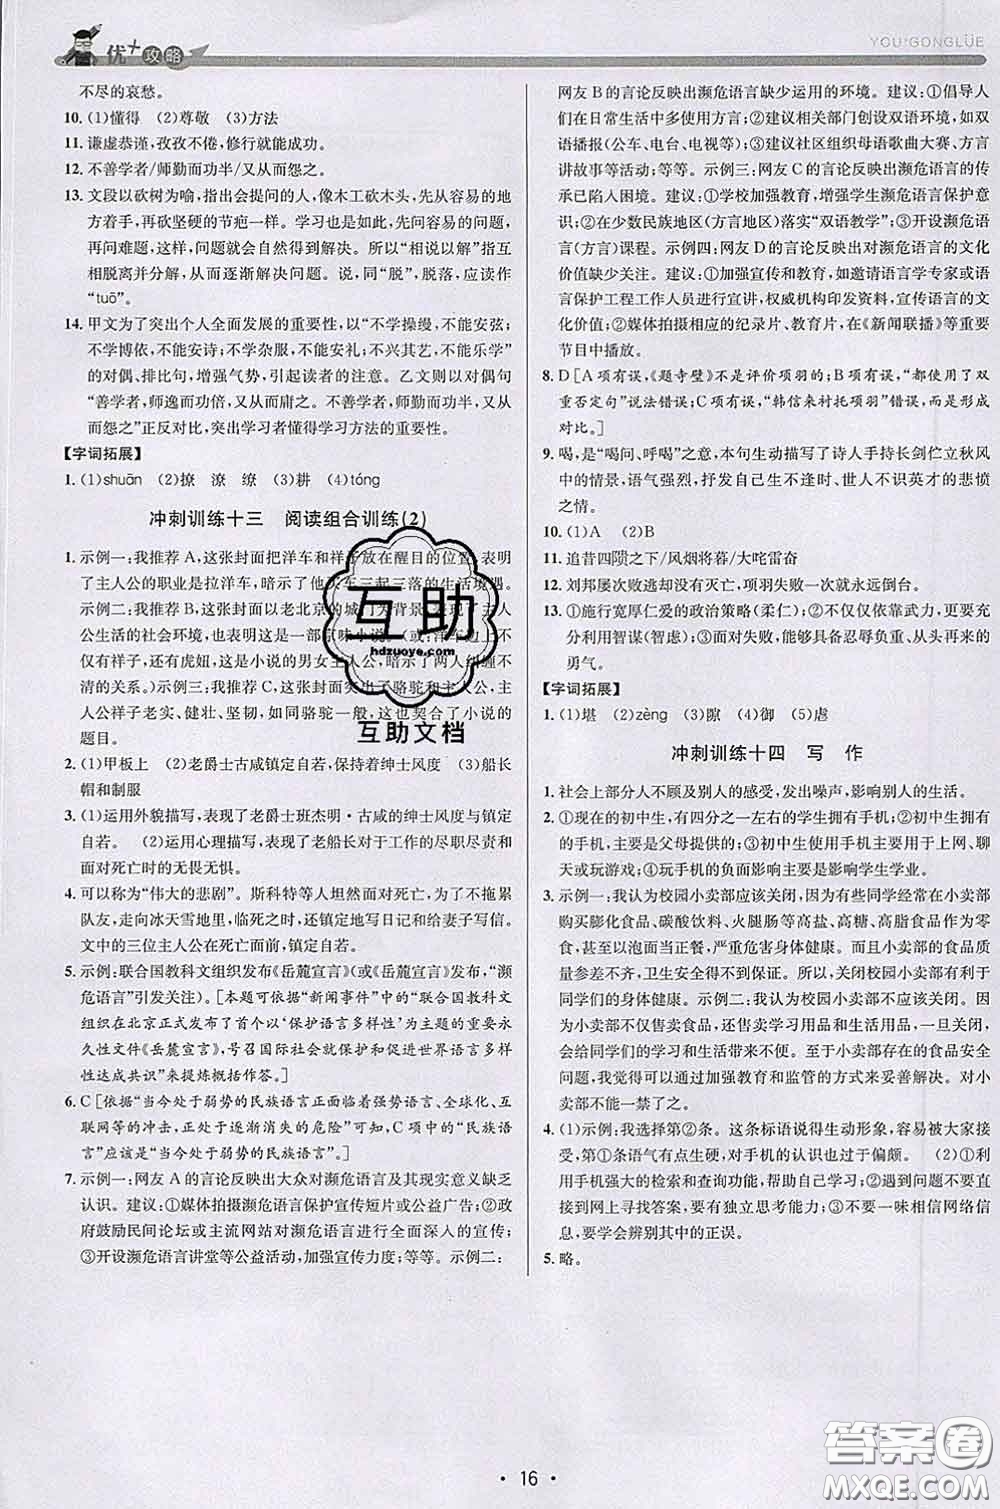 优+攻略
YOU+GONGLÜE
不尽的哀愁。
10. (1)懂得 (2)尊敬 (3)方法
11. 谦虚恭谨,孜孜不倦,修行就能成功。
12. 不善学者/师勤而功半/又从而怨之。
13. 文段以砍树为喻,指出会提问的人,像木工砍木头,先砍容易的
地方着手,再砍坚硬的节疤一样。学习也是如此,先问容易的问题,
再问难题,这样,问题就会自然得到解决。所以“相说以解”指互
相脱离并分析、从而逐渐解决问题。说,同“脱”,脱落,应读作
“tuō”。
14. 甲文为了突出个人全面发展的重要性,以“不学操缦,不能安弦;
不学博依,不能安诗;不学杂服,不能安礼;不兴其艺,不能乐学”
的对偶、排比句,增强气势,引起读者的注意。乙文则以对偶句
“善学者,师逸而功倍,又从而庸之。不善学者,师勤而功半,又从
而怨之”正反对比,突出学习者懂得学习方法的重要性。
【字词拓展】
1. (1)shuān (2)撩 潦 缭 (3)耕 (4)tóng
冲刺训练十三 阅读组合训练(2)
1. 示例一:我推荐A,这张封面把洋车和祥子放在醒目的位置,表明
了主人公的职业是拉洋车,暗示了他人车三起三落的生活境遇。
示例二:我推荐B,这张封面以老北京的城门为背景,表现了主人
公生活的社会环境,也表明这是一部京味小说。(或:洋车上面
不仅有祥子,还有虎妞,这是小说的男女主人公,暗示了两人纠缠不
清的关系。)示例三:我推荐C,这张封面突出了骆驼和主人公,主
人公祥子老实、健壮、坚韧,如同骆驼一般,这也契合了小说的
题目。
2. (1)甲板上 (2)老爵士古咸镇定自若,保持着绅士风度 (3)船长
帽和制服
3. (1)运用外貌描写,表现了老爵士班杰明·古咸的绅士风度与镇定
自若。 (2)运用心理描写,表现了老船长对于工作的尽职尽责和
面对死亡时的无畏无惧。
4. 可以称为“伟大的悲剧”。斯科特等人坦然面对死亡,为了不拖累
队友,走向冰天雪地里,临死之时,还镇定地写日记和给妻子写信。
文中的三位主人公在死亡面前,镇定自若。
5. 示例:联合国教科文组织发布《岳麓宣言》(或《岳麓宣言》发布,“濒
危语言”引发关注)。[本题可依据“新闻事件”中的“联合国教科文
组织在北京正式发布了首个以‘保护语言多样性’为主题的重要
永久性文件《岳麓宣言》,号召国际社会就保护和促进世界语言多样
性达成共识”来提炼概括作答。]
6. C[依据“当今处于弱势的民族语言正面临着强势语言、全球化、互
联网等的冲击,正处于逐渐消失的危险”可知,C项中的“民族语
言”应该是“当今处于弱势的民族语言”。]
7. 示例一:网友A的言论反映出大众对濒危语言及其现实意义缺乏
认识。建议:①媒体拍摄濒危语言保护宣传短片或公益广告;②政
府鼓励民间论坛或主流网站对濒危语言进行全面深入的宣传;
③开设濒危语言讲堂等公益活动,加强宣传力度;等等。示例二:
网友B的言论反映出濒危语言缺少运用的环境。建议:①倡导人
们在日常生活中多使用方言;②建议相关部门创设双语环境,如双
语播报(公车、电台、电视等);③建议社区组织母语歌曲大赛、方言
讲故事等活动;等等。示例三:网友C的言论反映出濒危语言的传
承已陷入困境。建议:①学校加强教育,增强学生濒危语言保护意
识;②在少数民族地区(方言地区)落实“双语教学”;③开设濒危语言
(方言)课程。示例四:网友D的言论反映出对濒危语言的文化
价值缺少关注。建议:①加强宣传和教育,如邀请语言学专家或语
言保护工程工作人员进行宣讲,权威机构印发资料,宣传语言的文
化价值;②媒体拍摄相应的纪录片、教育片,在《新闻联播》等重要
节目中播放。
8. D[A项有误,《题寺壁》不是评价项羽的;B项有误,“采用了双
重否定句”说法错误;C项有误,“韩信来衬托项羽”错误,而是形成
对比。]
9. 喝,是“喝问、呼喝”之意,本句生动描写了诗人手持长剑伫立秋风
中的形象,语气强烈,抒发了自己生不逢时、世人不识英才的悲愤
之情。
10. (1)A (2)B
11. 追昔四隤之下/风烟将暮/大咤雷奋
12. 刘邦屡次败逃却没有灭亡,项羽失败一次就永远倒台。
13. ①施行宽厚仁爱的政治策略(柔仁)。②不仅仅依靠武力,更要充
分利用智谋(智虑)③面对失败,能够具备忍辱负重、从头再来的
勇气。
【字词拓展】
1. (1)堪 (2)zèng (3)隙 (4)御 (5)虐
冲刺训练十四 写 作
1. 社会上部分人不顾及别人的感受,发出噪声,影响别人的生活。
2. ①现在的初中生,有四分之一左右的学生拥有手机;②学生拥有的
手机,主要是父母提供的;③初中生使用手机主要用于上网、聊天
或玩游戏;④玩手机的负面影响主要是影响学生学业。
3. 示例一:我认为校园小卖部应该关闭。因为有些同学经常在小卖部
购买膨化食品、碳酸饮料、火腿肠等高盐、高糖、高脂食品食用,
甚至以泡面当正餐,严重危害身体健康。而且小卖部的食品质
量参差不齐,卫生安全得不到保障。所以,关闭校园小卖部有利于
同学们的身体健康。示例二:我认为校园小卖部不应该关闭。小
卖部不仅售卖食品,还售卖学习用品和生活用品,一旦关闭,
会给同学们的学习和生活带来不便。至于小卖部存在的食品安全
问题,我觉得可以通过加强教育和监管的方式来妥善解决。对小
卖部不能一禁了之。
4. (1)示例:我选择第②条。这条标语说得生动形象,容易被大家接
受,第①条语气有点生硬,对手机的认识也过于偏颇。 (2)①利
用手机强大的检索和查询功能,帮助自己学习;②避免有问题直
接到网上寻找答案,要有独立思考能力;③不要一味相信网络信
息,要学会辨别其中的正误。
5. 略。
互助
hdzuoye.com
互助文档
· 16 ·
答案圈
MXQE.COM